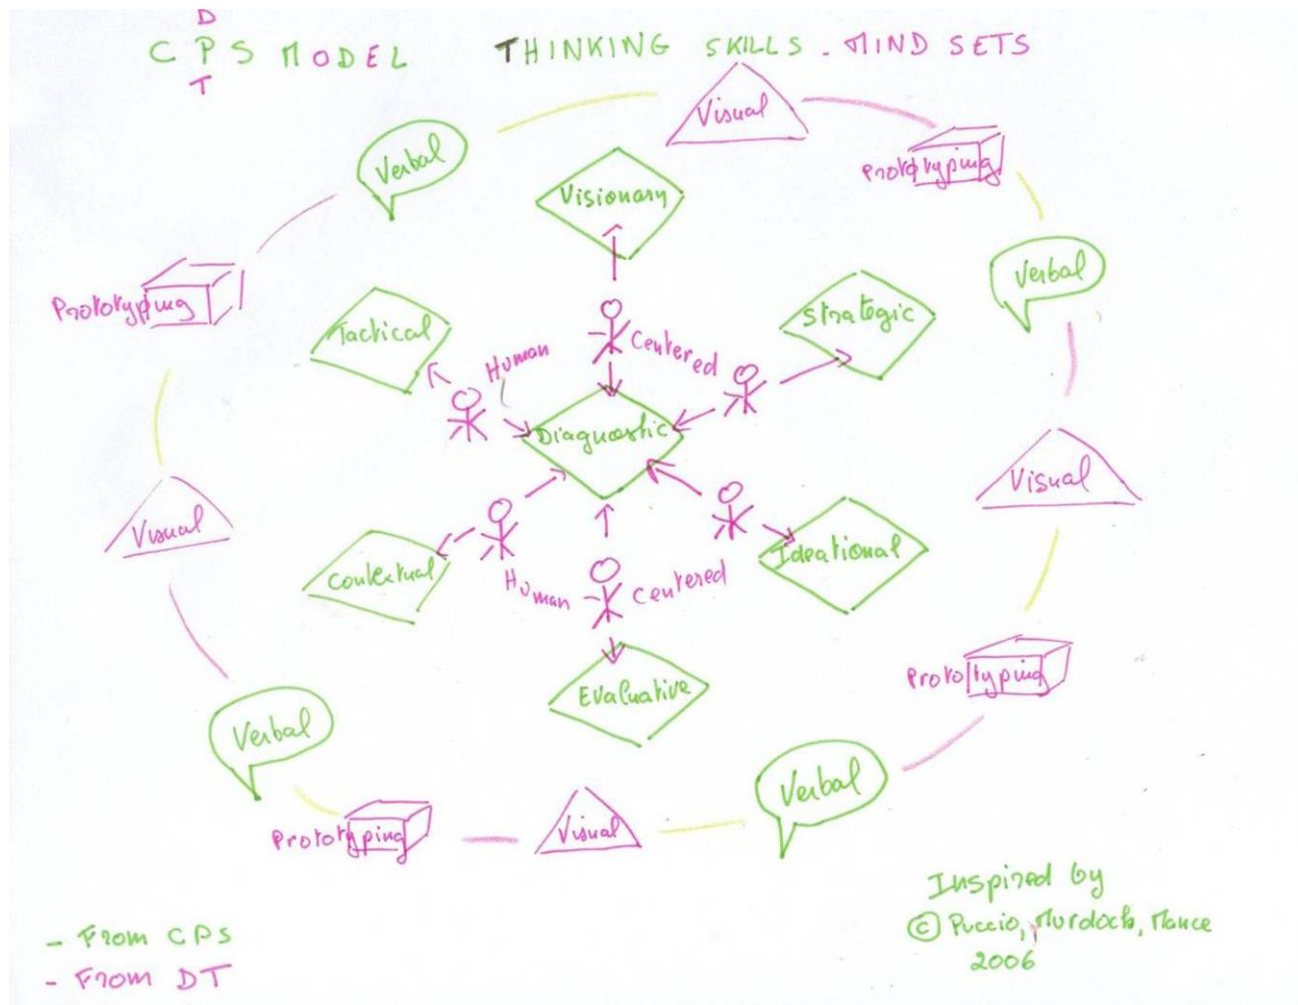 D
CPS MODEL THINKING SKILLS - MIND SETS
T
Visual
Verbal
Prototyping
Visionary
Verbal
Prototyping
Tactical
Strategic
Human Centered
Diagnostic
Visual
Visual
Contextual
Ideational
Human Centered
Prototyping
Evaluative
Verbal
Verbal
Prototyping
Visual
Inspired by
© Puccio, Murdock, Mance
2006
- From CPS
- From DT